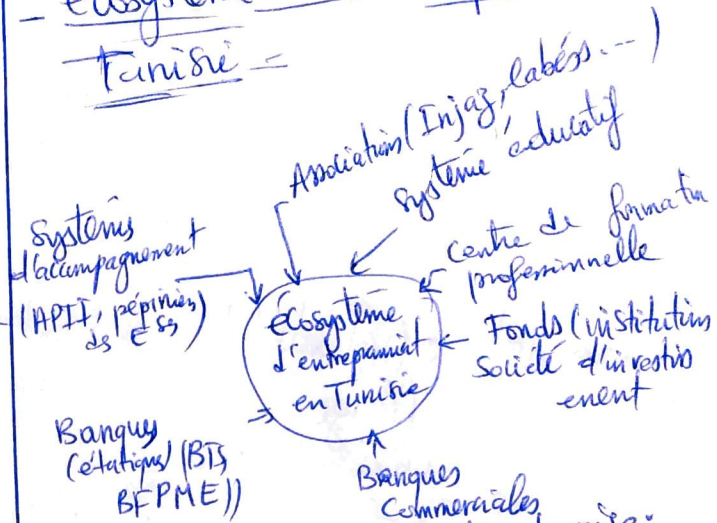 - Ecosystème
Tunisie =
Association (Injaz, labéss...)
Système éducatif
Systèms
d'accompagnement
(API, pépinièrs
ds ESs)
Centre de formation
professionnelle
Ecosystème
d'entreprenariat
en Tunisie
Fonds (institutions
Société d'investiss
ement
Banques
(étatiques) (BTS
BFPME))
Banques
Commerciales